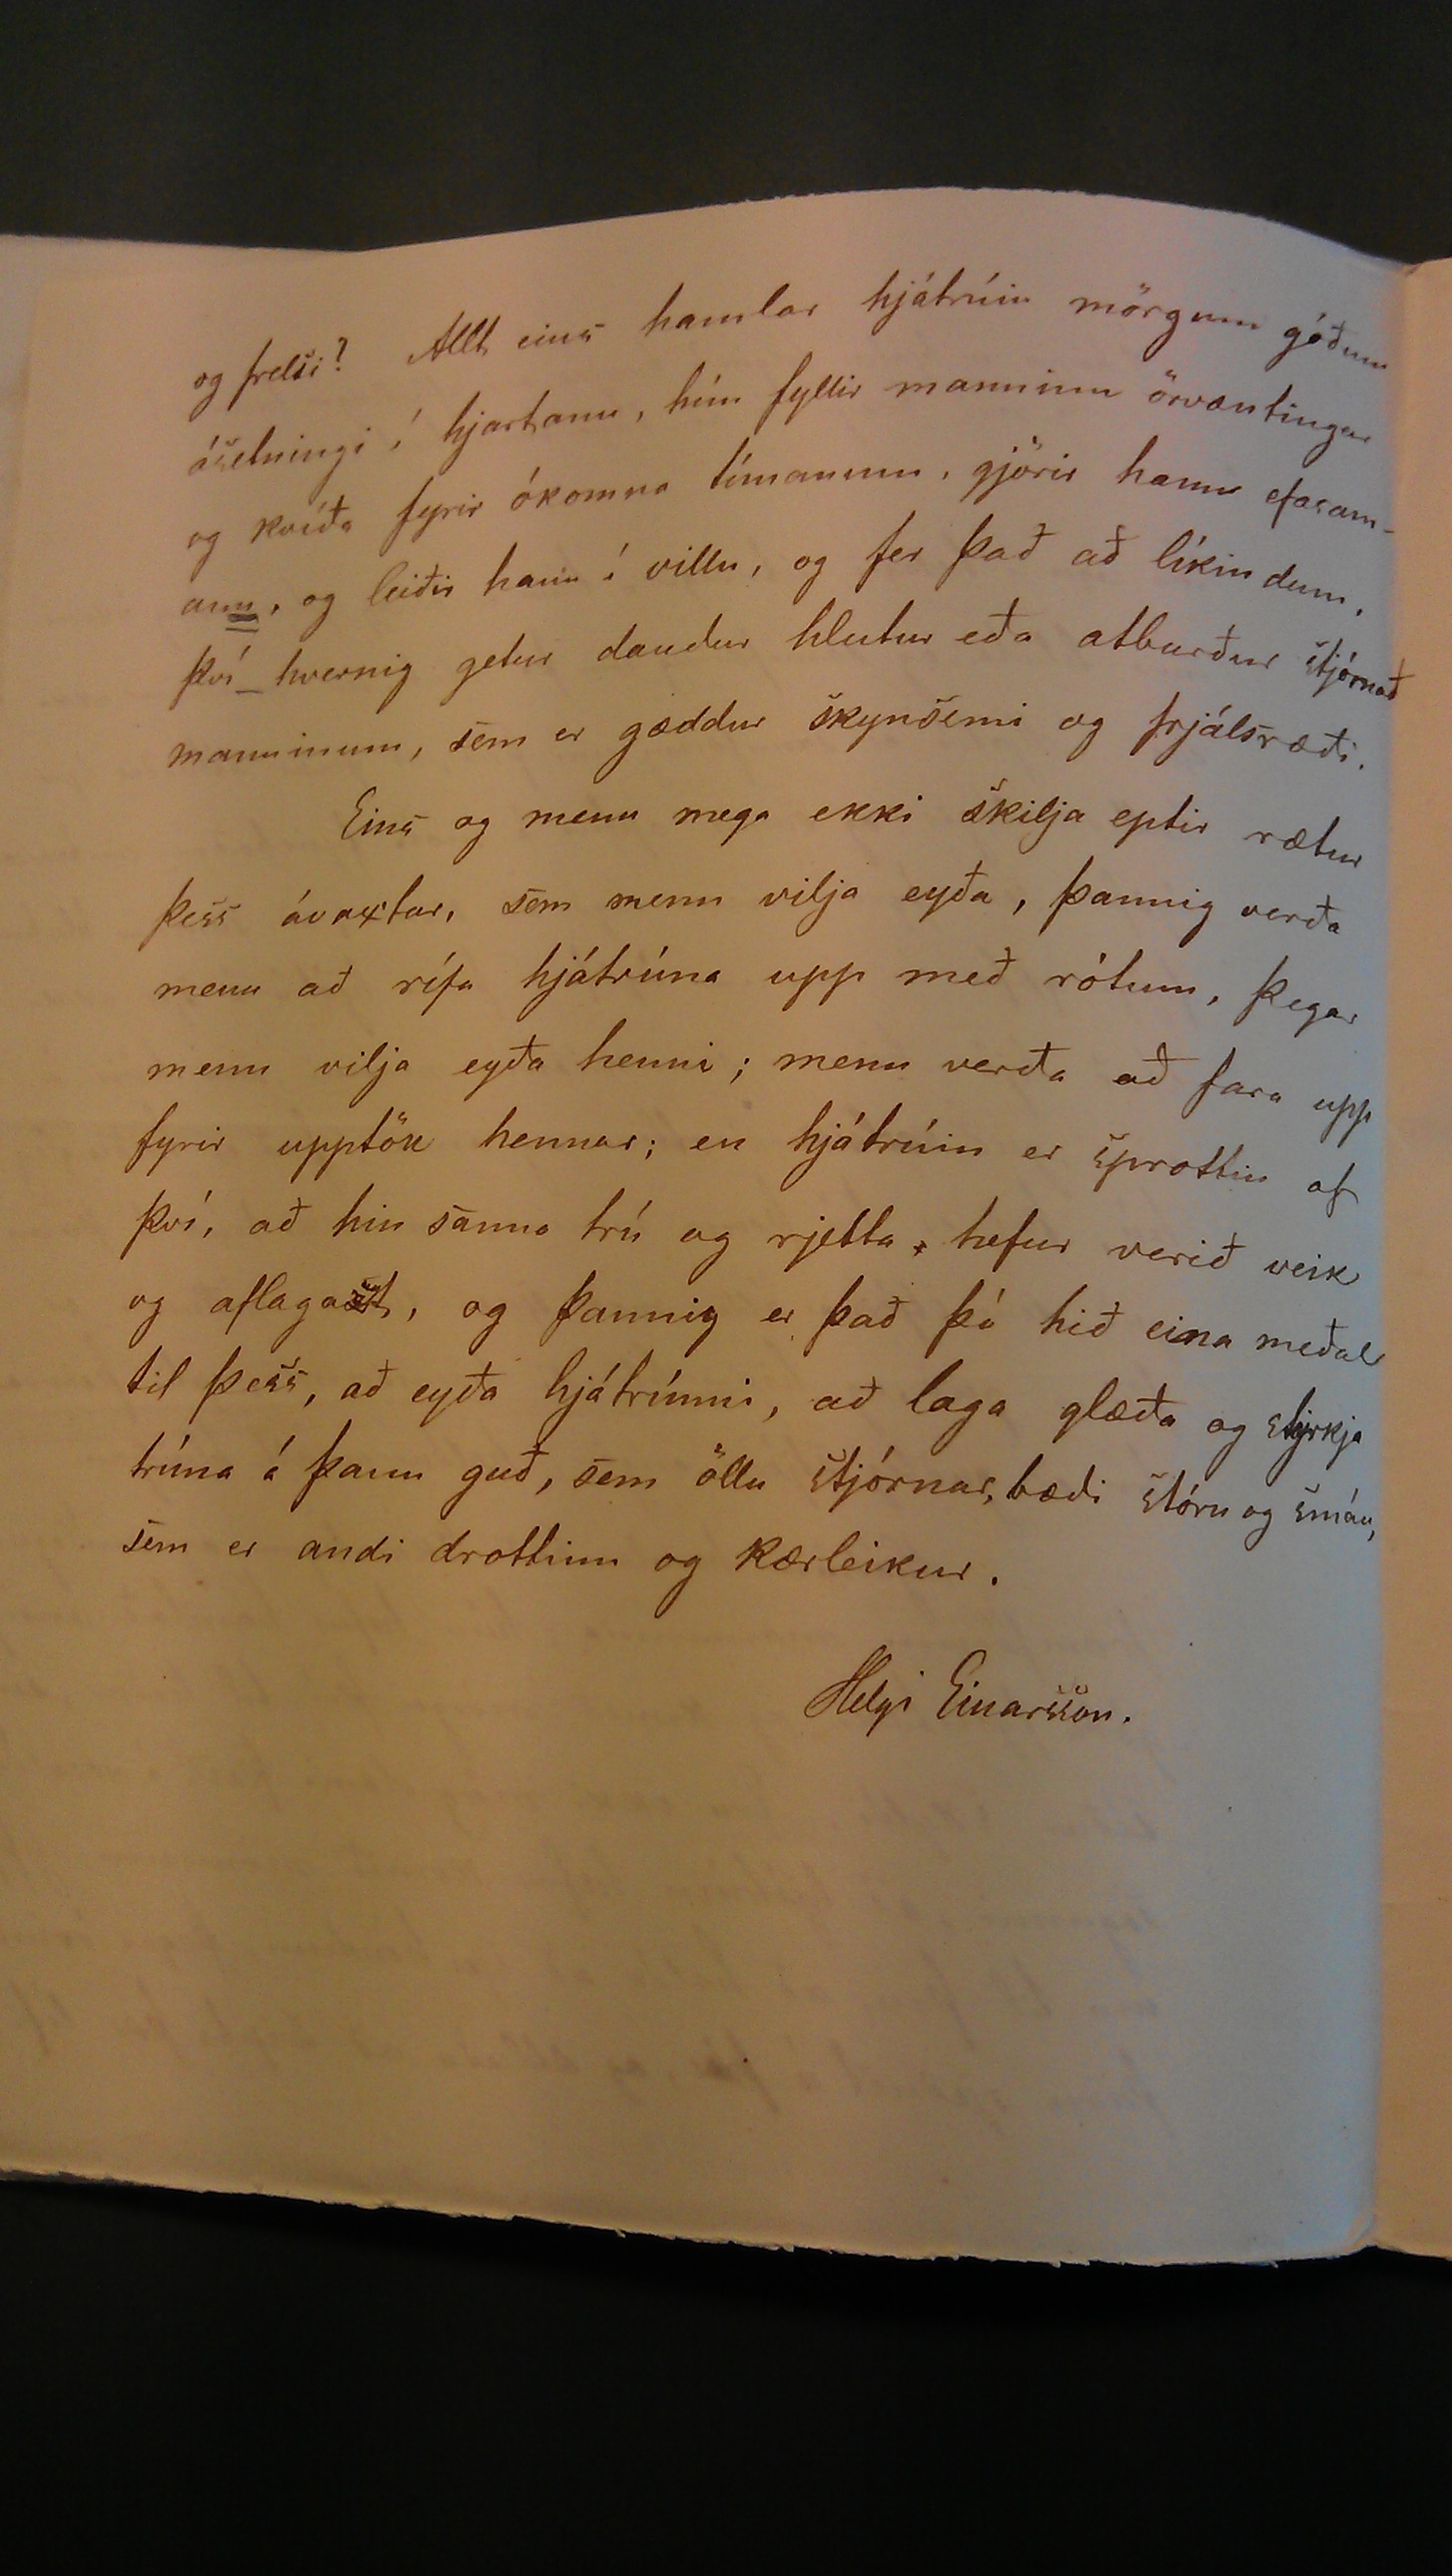 og frelsi? Allt eins hamlar hjátrúin mörgum góðum
ásetningi í hjartanu, hún fyllir manninn örvæntingar
og kvíða fyrir ókomna tímanum, gjörir hann efasam-
ann, og leiðir hann í villu, og fer það að líkindum,
því hvernig getur dauður hlutur eða atburður stjórnað
manninum, sem er gæddur skynsemi og frjálsræði.
Eins og menn mega ekki skilja eptir rætur
þess ávaxtar, sem menn vilja eyða, þannig verða
menn að rífa hjátrúna upp með rótum, þegar
menn vilja eyða henni; menn verða að fara upp
fyrir upptök hennar; en hjátrúin er sprottin af
því, að hin sanna trú og rjetta, hefur verið veik
og aflagast, og þannig er það þá hið eina meðal
til þess, að eyða hjátrúnni, að laga glæða og styrkja
trúna á þann guð, sem öllu stjórnar, bæði stóru og smáu,
sem er andi drottinn og kærleikur.
Helgi Einarsson.